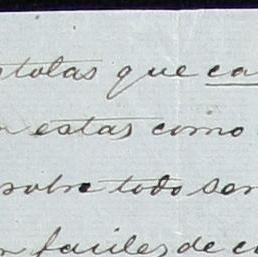 stolas que ca
n estas como
sobre todo ser
n faciles de co